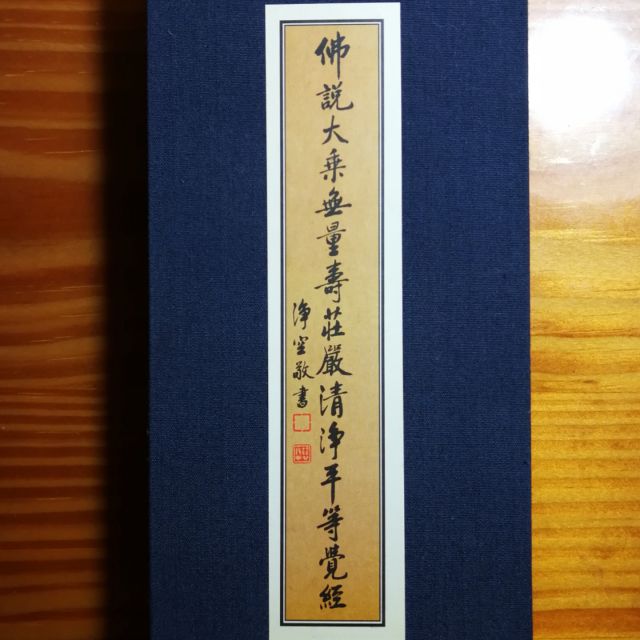 佛説大乗無量壽莊嚴清淨平等覺經
淨空敬書